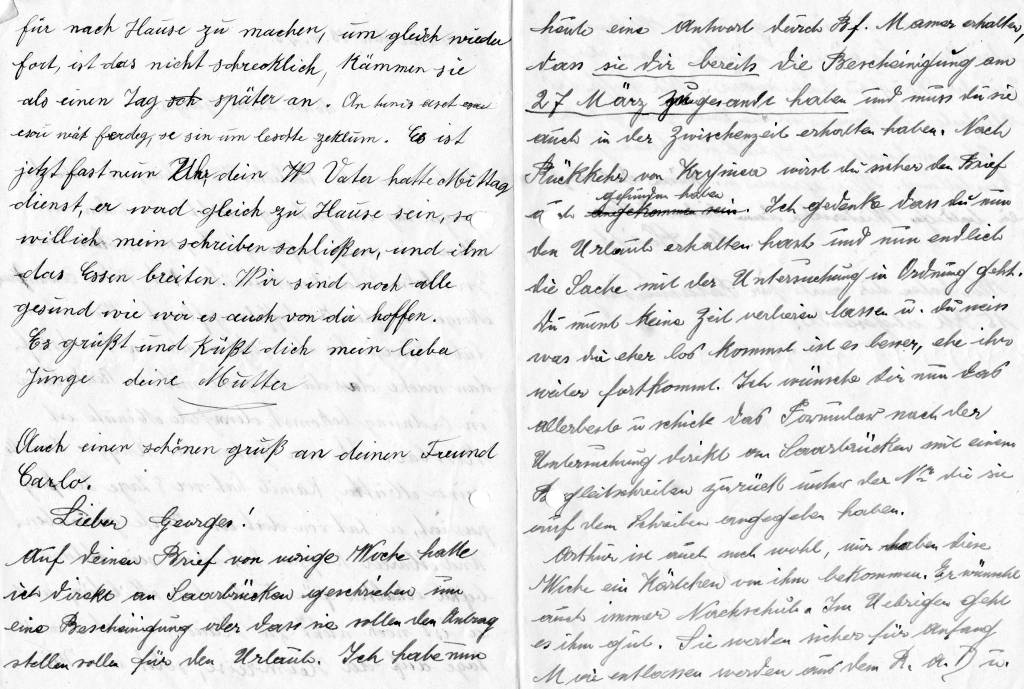 für nach Hause zu machen, um gleich wieder
fort, ist das nicht schrecklich, kämmen sie
als einen Tag später an. On
nüt ferdeg, se sin um leschte. Es ist
jetzt fast neun Uhr, dein Vater hatte Mittag
dienst, er word gleich zu Hause sein, so
will ich mein schreiben schließen, und ihm
das Essen breiten. Wir sind noch alle
gesund wie wir es auch von dir hoffen.
Es grüßt und küßt dich mein lieber
Junge deine Mutter
Auch einen schönen gruß an deinen Freund
Carlo.
Lieber Georges!
Auf deinen Brief von vorige Woche hatte
ich direkt an Saarbrücken geschrieben um
eine Bescheinigung oder dass sie sollen den Antrag
stellen sollen für den Urlaub. Ich habe nun
heute eine Antwort durch Bf. Mamer erhalten,
dass sie dir bereits die Bescheinigung am
27 März zugesandt haben und muss du sie
auch in der Zwischenzeit erhalten haben. Nach
Rückkehr von wirst du sicher den Brief
gefunden haben
angekommen sein. Ich gedenke dass du nun
den Urlaub erhalten hast und nun endlich
die Sache mit der Untersuchung in Ordnung geht.
Du musst keine Zeit verlieren lassen u. du weis
was die eher los kommst ist es besser, ehe ihr
weiter fortkommt. Ich wünsche dir nun das
allerbeste u schick das Formular nach der
Untersuchung direkt an Saarbrücken mit einem
Begleitschreiben zurück unter der Nr die sie
auf dem Schreiben angegeben haben.
Arthur ist auch noch wohl, wir haben diese
Woche ein Kärtchen von ihm bekommen. Er wünscht
auch immer Nachschub. Im Uebrigen geht
es ihm gut. Sie werden sicher für Anfang
entlassen werden aus dem R. a. D u.